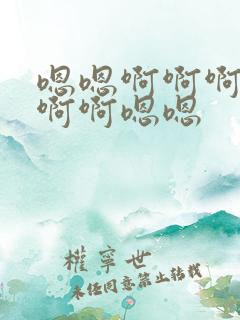 嗯嗯啊啊啊
啊啊嗯嗯
權寧世
未经同意禁止转载